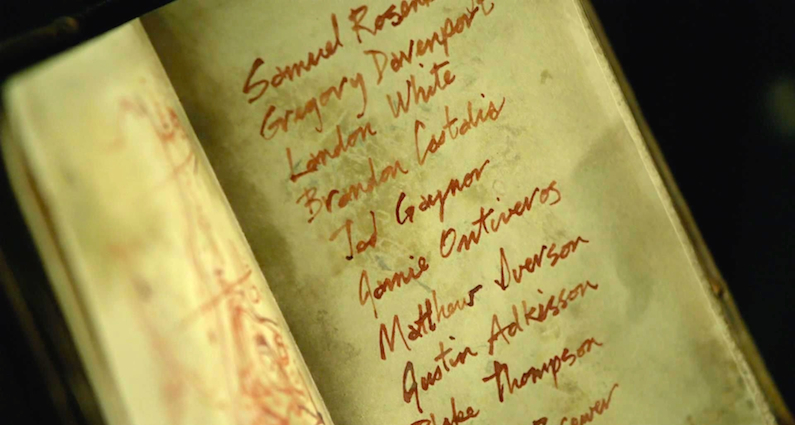 Samuel
Gregory Davenport
Landon White
Brandon Castalis
Ted Gaynor
Jamie Ontiveros
Matthew Iverson
Justin Adkisson
Blake Thompson